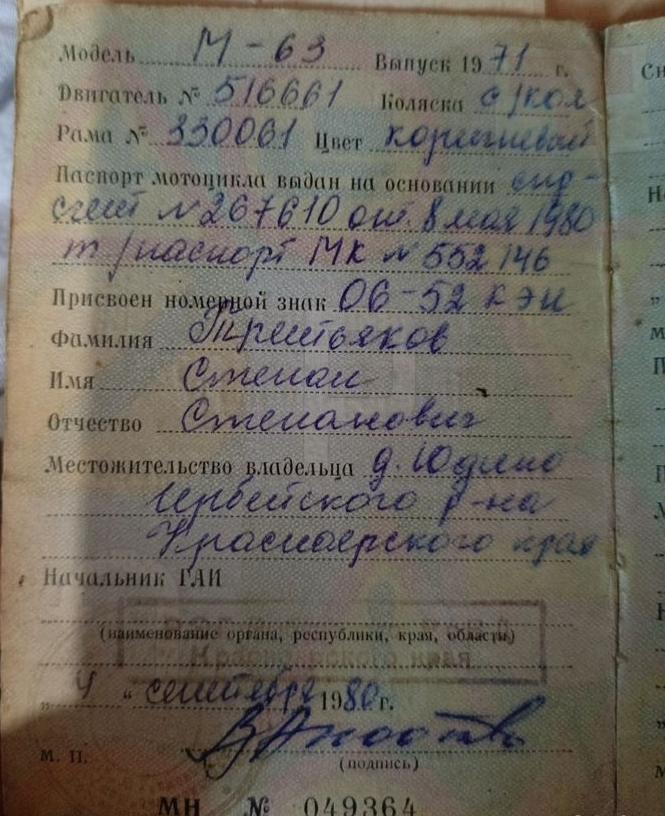 Модель М-63 Выпуск 1971 г.
Двигатель № 516661 Коляска с/кол
Рама № 330061 Цвет коричневый
Паспорт мотоцикла выдан на основании
счет №267610 от 8 мая 1980
т/паспорт МК № 552146
Присвоен номерной знак 06-52 КЭИ
Фамилия Третьяков
Имя Степан
Отчество Степанович
Местожительство владельца д. Юдино
Ирбейского р-на
Красноярского края
Начальник ГАИ
(наименование органа, республики, края, области)
„4“ сентября 1980 г.
М. П. (подпись)
МН № 049364